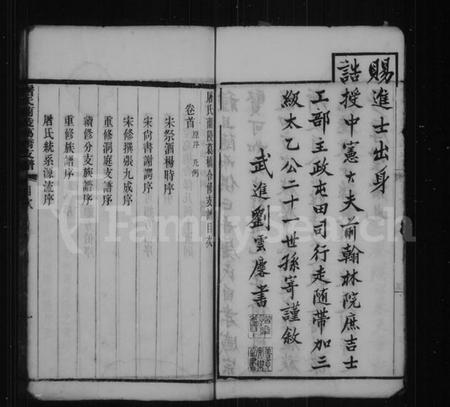 賜進士出身
誥授中憲大夫前翰林院庶吉士
工部主政屯田司行走隨帶加三
級太乙公二十一世孫寄謹敘
武進劉雲廑書
屠氏蘭陵葛橋合修支譜目次
卷首 原序 凡例
宋祭酒楊時序
宋尚書謝諤序
宋修撰張九成序
續修洞庭支譜序
續修分支族譜序
重修族譜序
屠氏統系源流序
目次
FamilySearch